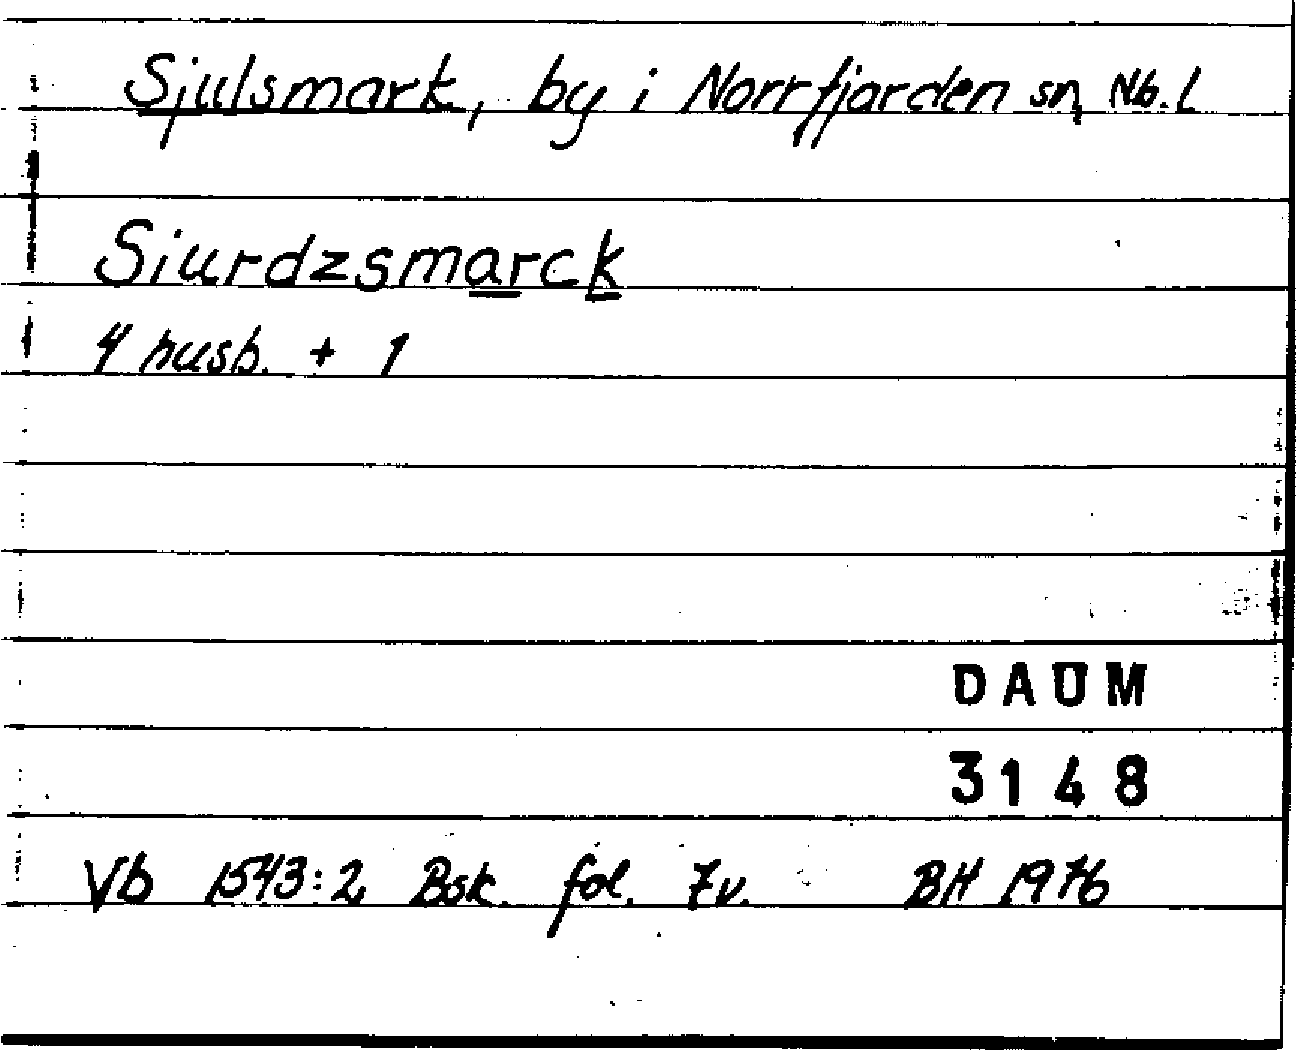 Sjulsmark, by i Norrfjärden sn, Nb. l
Siurdzsmarck
4 husb. + 1
DAUM
3148
Vb 1543:2 Bsk. fol. 7v. BH 1976